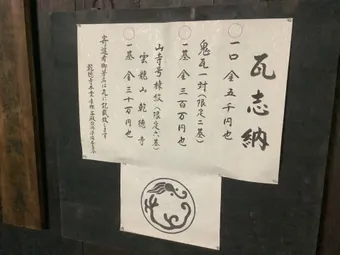 瓦志納
一口 金五千円也
鬼瓦一対(限定二基)
一基 金三百万円也
山寺号棟紋(限定六基)
雲龍山 乾徳寺
一基 金三十万円也
寄進者御芳名は瓦に記載致します